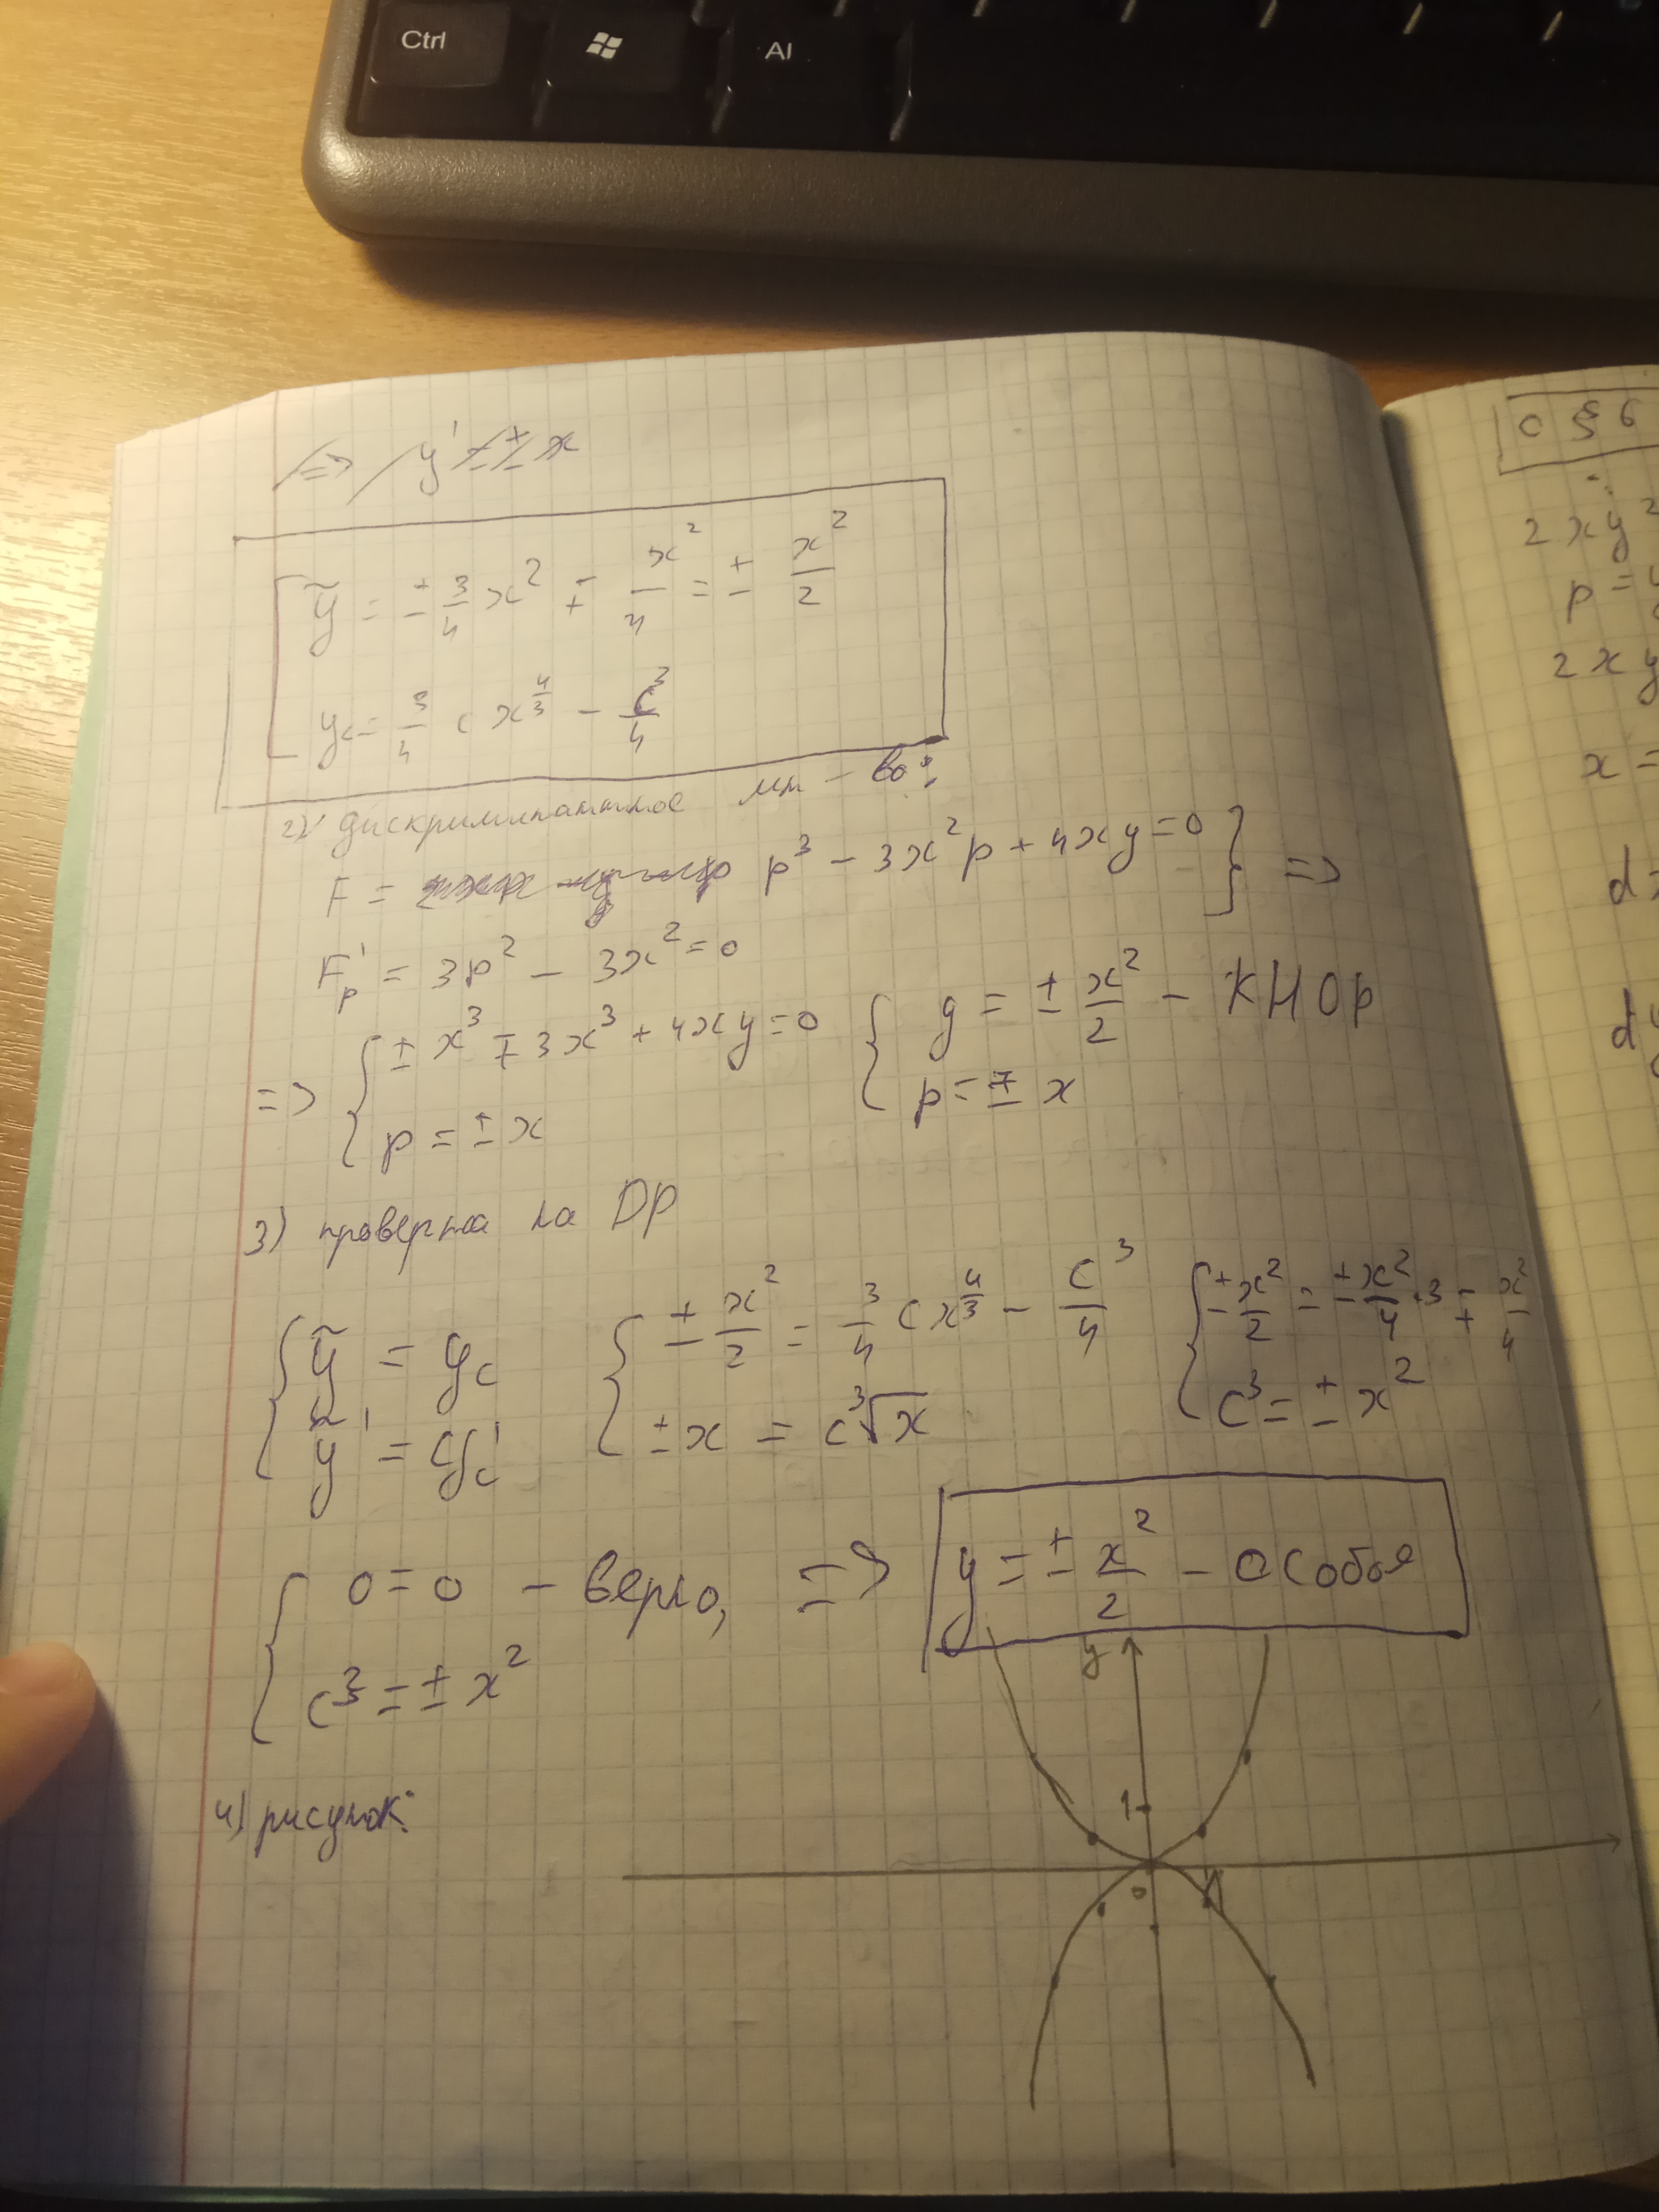 Ctrl
Al
=> y' = ± x
ỹ = ± 3/4 x² ∓ x²/4 = ± x²/2
y_c = 3/4 c x^(4/3) - c³/4
2) дискриминантное мн-во:
F = p³ - 3x²p + 4xy = 0 } =>
F'_p = 3p² - 3x² = 0
=> { ± x³ ∓ 3x³ + 4xy = 0
p = ± x
{ y = ± x²/2 - КНОР
p = ∓ x
3) проверка на ДР
{ ỹ = y_c
ỹ' = y'_c
{ ± x²/2 = 3/4 c x^(4/3) - c³/4
± x = c ∛x
{ ± x²/2 = ± x²/4 · 3 ∓ x²/4
c³ = ± x²
{ 0 = 0 - верно,
c³ = ± x²
=> y = ± x²/2 - особое
4) рисунок:
y
1
0
1
c § 6
2xy²
p =
2xy
x =
d
d